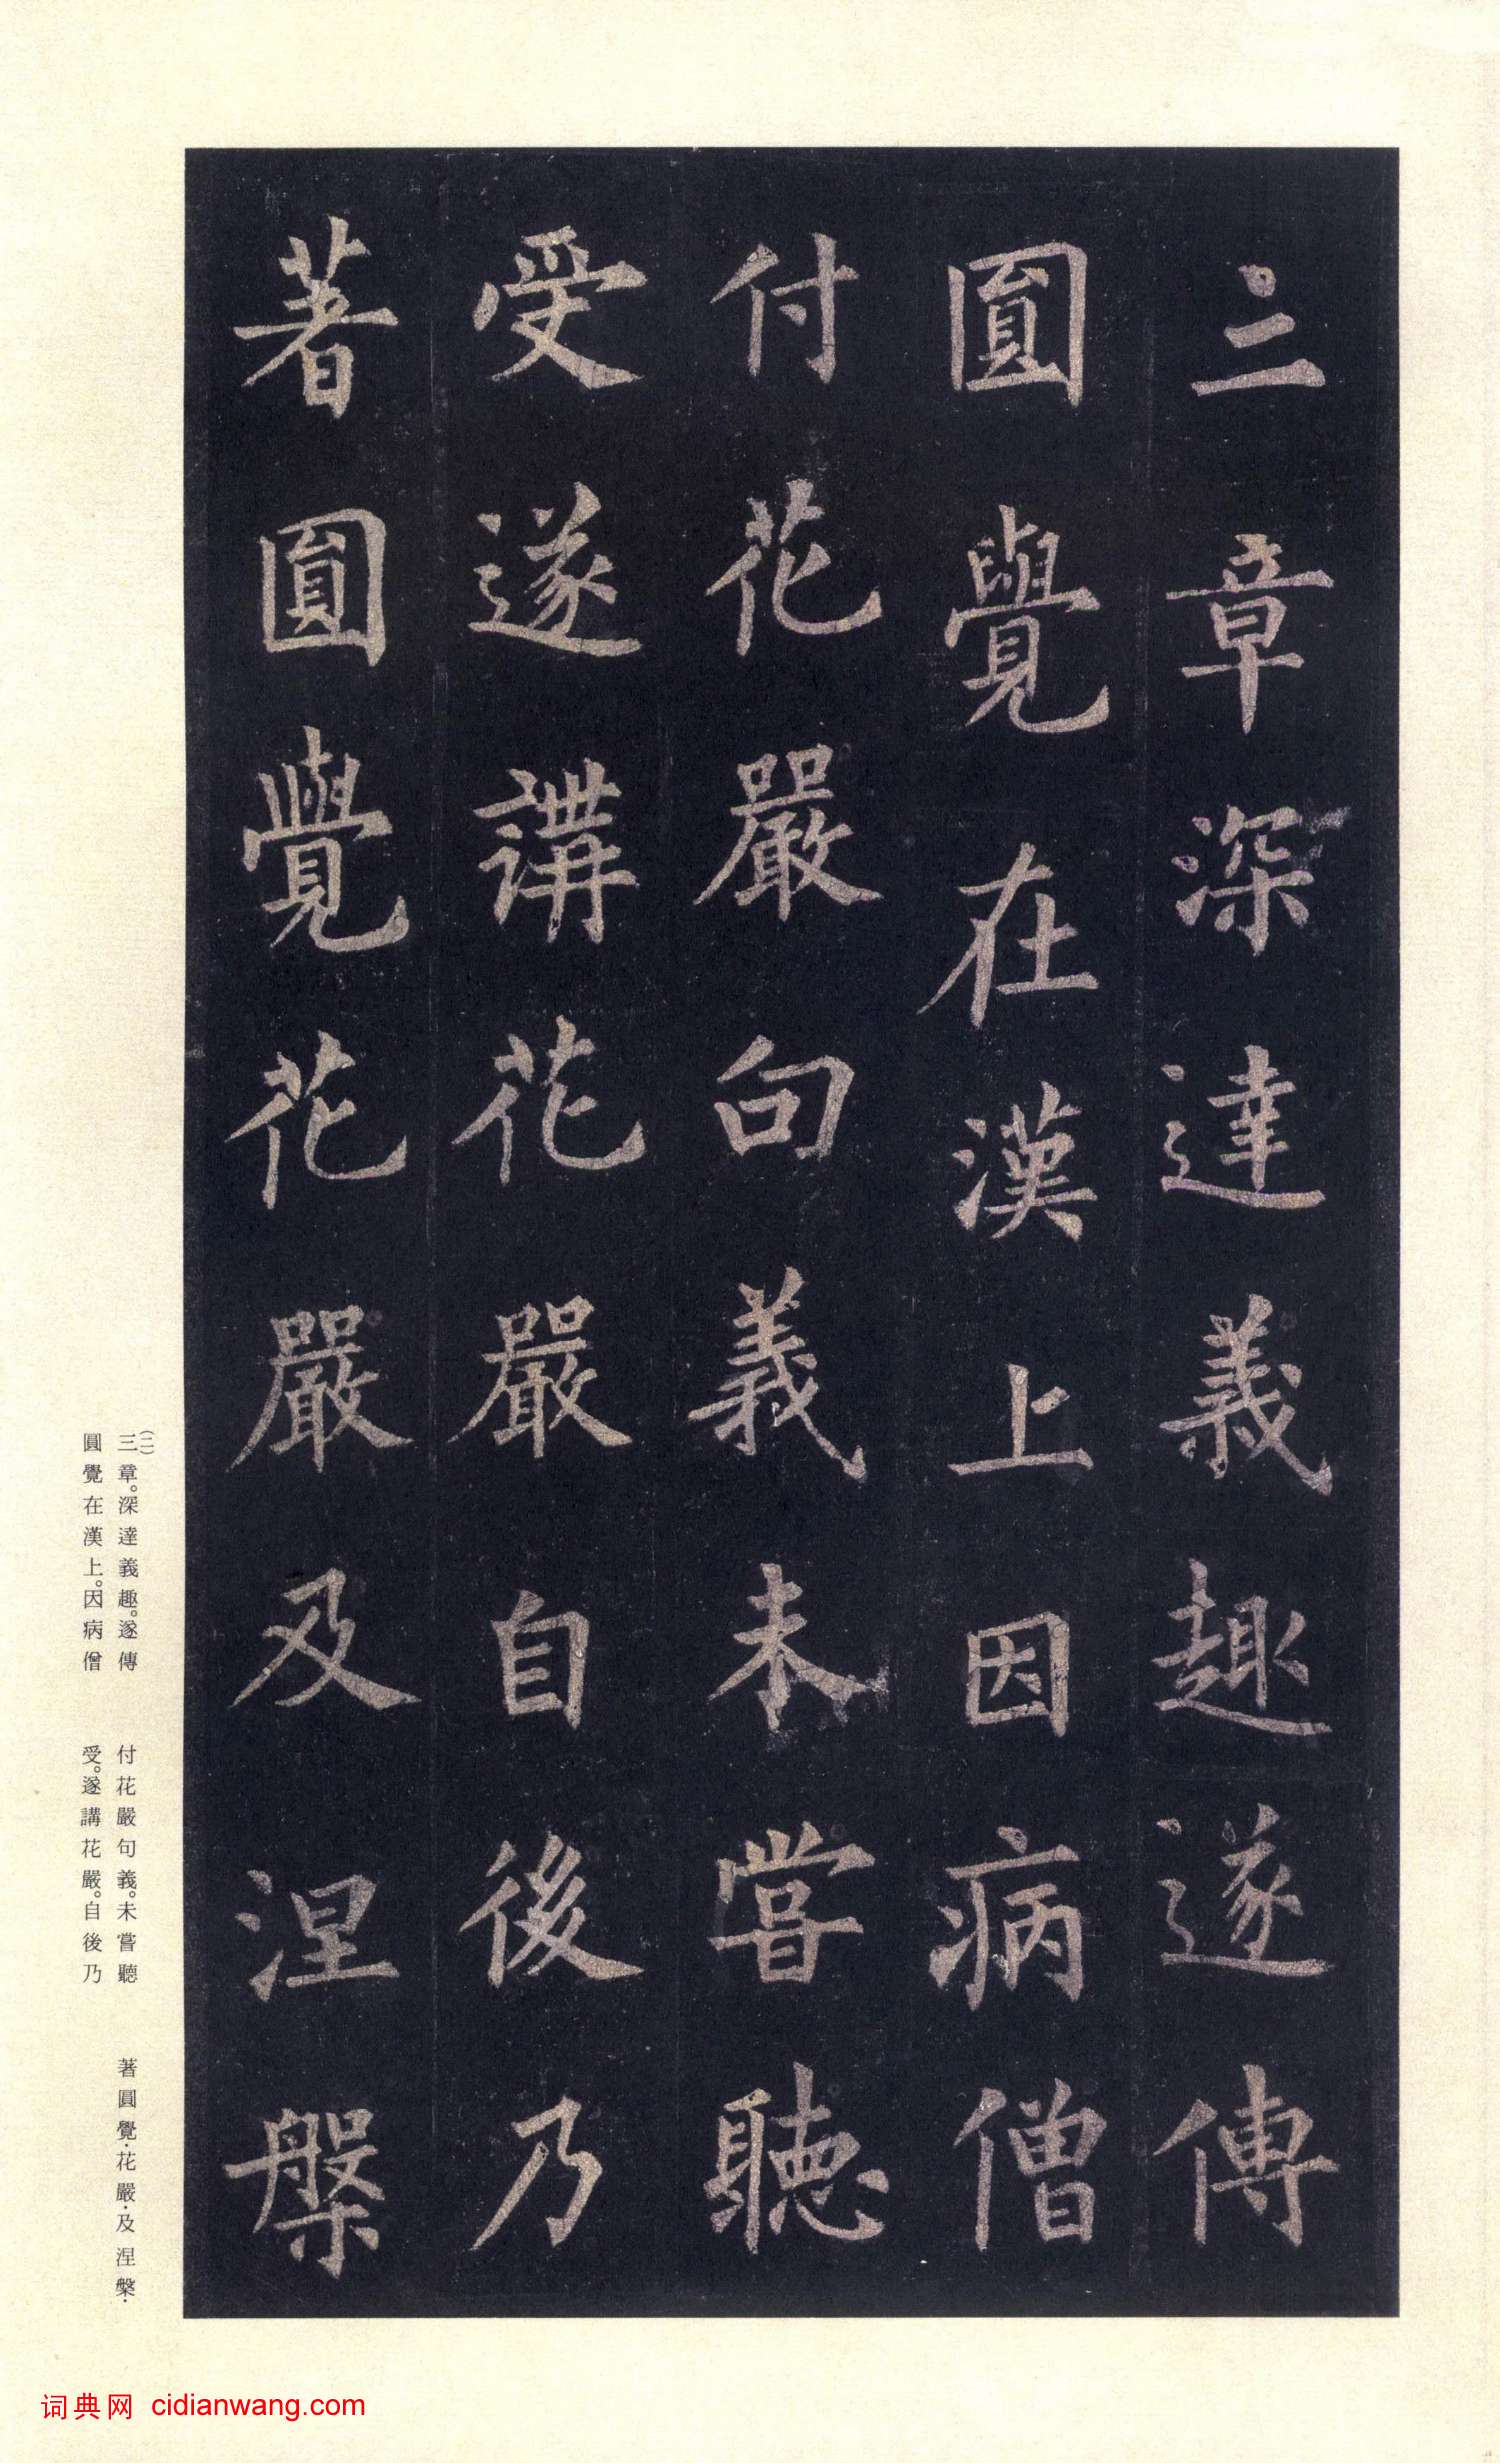 三章深達義趣遂傳
圓覺在漢上因病僧
付花嚴句義未嘗聽
受遂講花嚴自後乃
著圓覺花嚴及涅槃
(二)
三章。深達義趣。遂傳
圓覺在漢上。因病僧
付花嚴句義。未嘗聽
受。遂講花嚴。自後乃
著圓覺·花嚴·及涅槃·
词典网 cidianwang.com